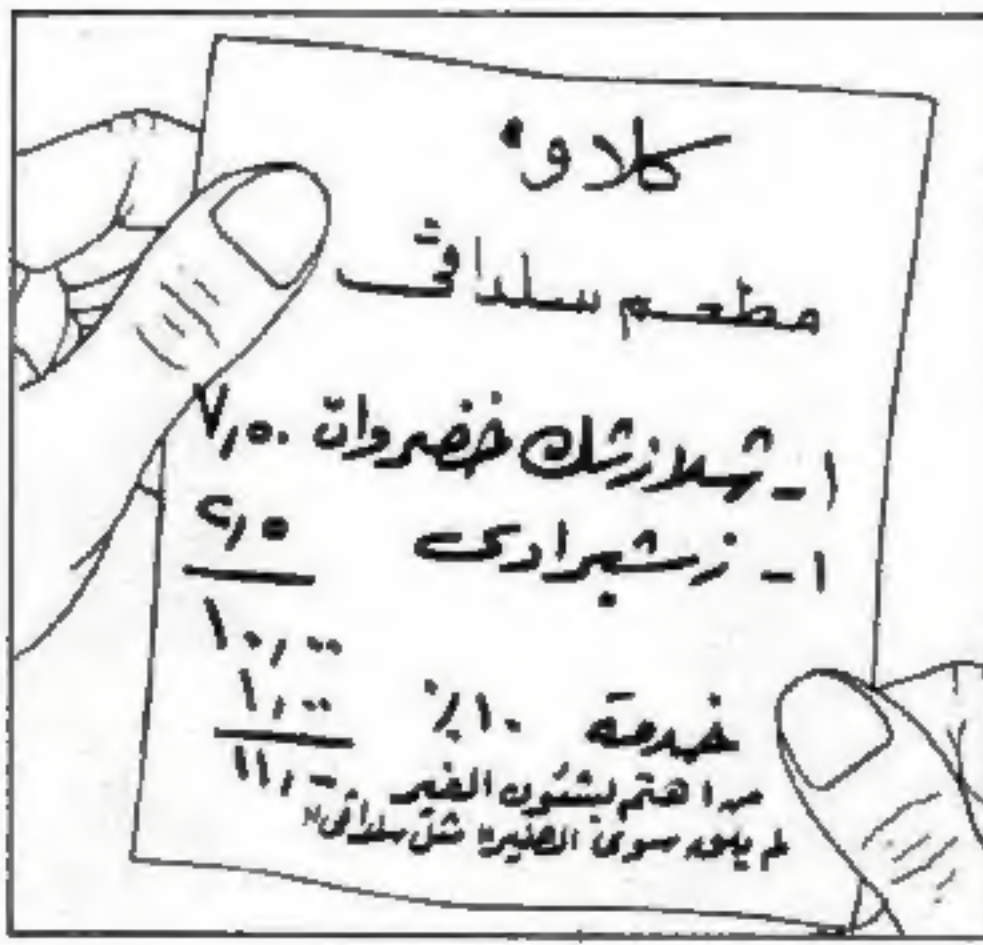 كلاو
مطعم سلداني
١- شهلازشك خضروات ٧,٥٠
١- زشبرادى ٢,٥
١٠,٠٠
خدمة ١٠٪ ١,٠٠
١١,٠٠
من اهتم بشئون الغير
لم يلق سوى الضير! مثل سلداني"